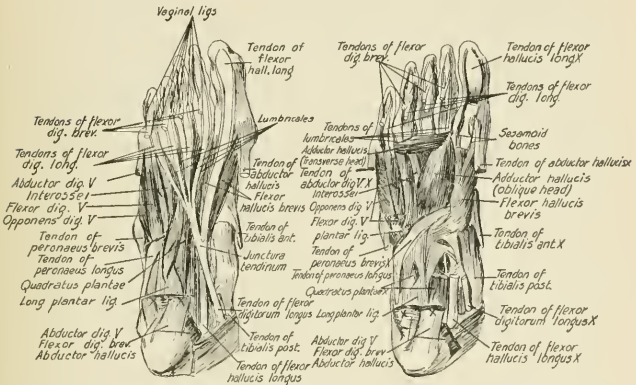 Vaginal ligs
Tendon of
flexor
hall. long
Tendons of flexor
dig. brev.
Lumbricales
Tendons of flexor
dig. long.
Abductor dig. V
Interossei
Flexor dig. V
Opponens dig. V
Tendon of
peronaeus brevis
Tendon of
peronaeus longus
Quadratus plantae
Long plantar lig.
Abductor dig. V
Flexor dig. brev.
Abductor hallucis
Tendon of
abductor
hallucis
Flexor
hallucis brevis
Tendon of
tibialis ant.
Junctura
tendinum
Tendon of flexor
digitorum longus
Tendon of
tibialis post.
Tendon of flexor
hallucis longus
Tendons of flexor
dig. brev.
Tendon of flexor
hallucis long X
Tendons of flexor
dig. long.
Tendons of
lumbricales
Adductor hallucis
(transverse head)
Tendon of
abductor dig. V. X
Interossei
Opponens dig V
Flexor dig. V
plantar lig.
Tendon of
peronaeus brevis X
Tendon of peronaeus longus
Quadratus plantae X
Long plantar lig.
Abductor dig V
Flexor dig. brev
Abductor hallucis
Sesamoid
bones
Tendon of abductor hallucis x
Adductor hallucis
(oblique head)
Flexor hallucis
brevis
Tendon of
tibialis ant. X
Tendon of
tibialis post.
Tendon of flexor
digitorum longus X
Tendon of flexor
hallucis longus X